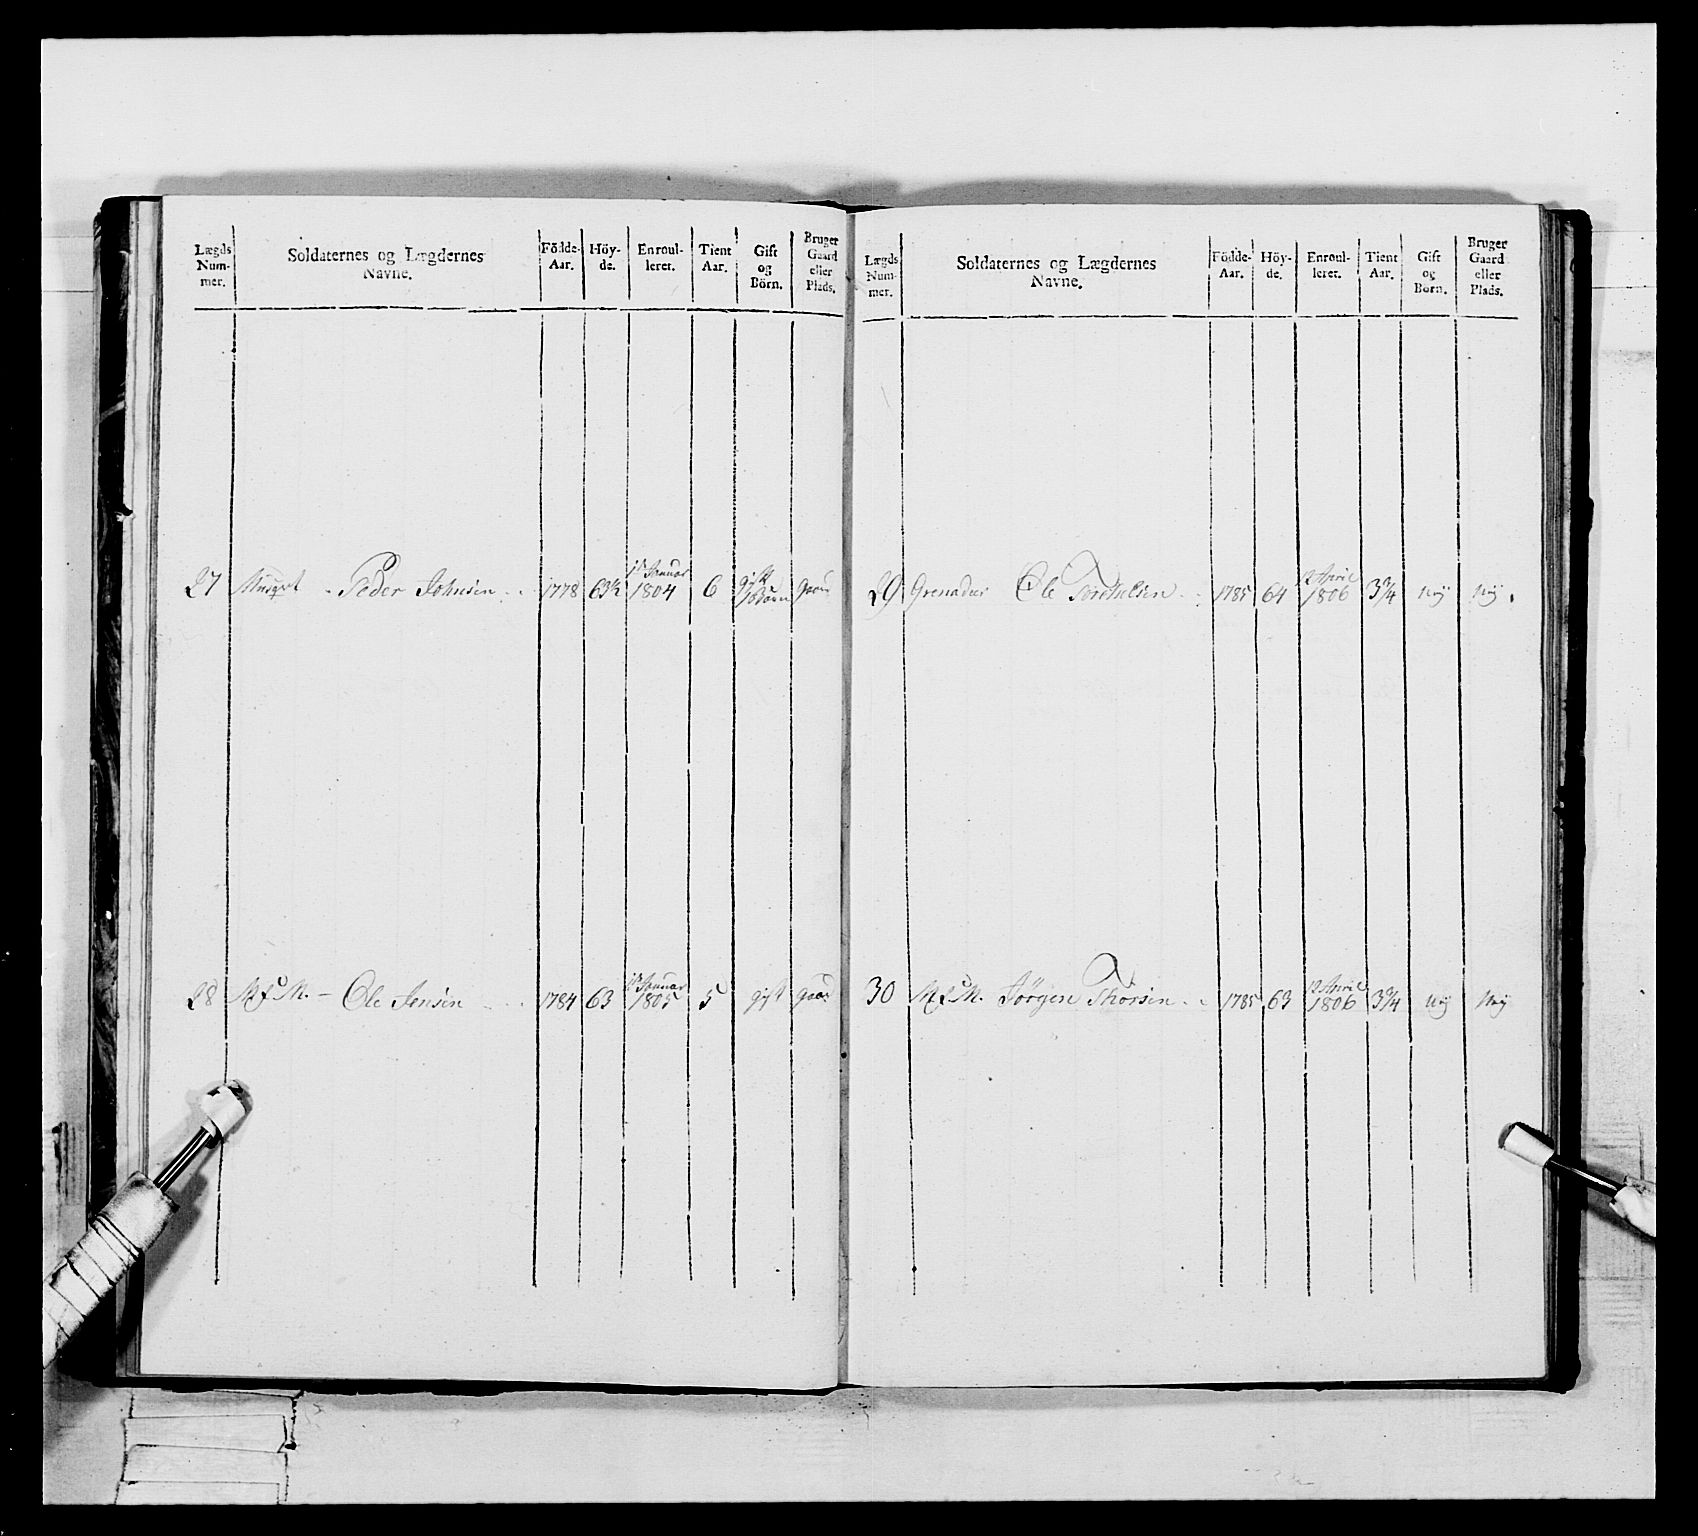 Lægds Num- mer. | Soldaternes og Lægdernes Navne. | Födde- Aar. | Höy- de. | Enroul- leret. | Tient Aar. | Gift og Börn. | Bruger Gaard eller Plads.
27 Musqt - Peder Johnsen 1778 63½ 1ste Januar 1804 6 gift Gaard
28 Ole Jensen 1784 63 Januar 1805 5 gift gaard
Lægds Num- mer. | Soldaternes og Lægdernes Navne. | Födde- Aar. | Höy- de. | Enroul- leret. | Tient Aar. | Gift og Börn. | Bruger Gaard eller Plads.
29 Grenadeer Ole 1785 64 12 April 1806 3¾ nÿ nÿ
30 Jörgen Thorsen 1785 63 12 April 1806 3¾ nÿ nÿ